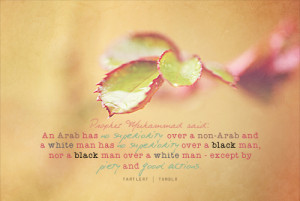 Prophet Muhammad said:
An Arab has no superiority over a non-Arab and
a white man has no superiority over a black man,
nor a black man over a white man - except by
piety and good actions.
FARFLEST | TUMBLR